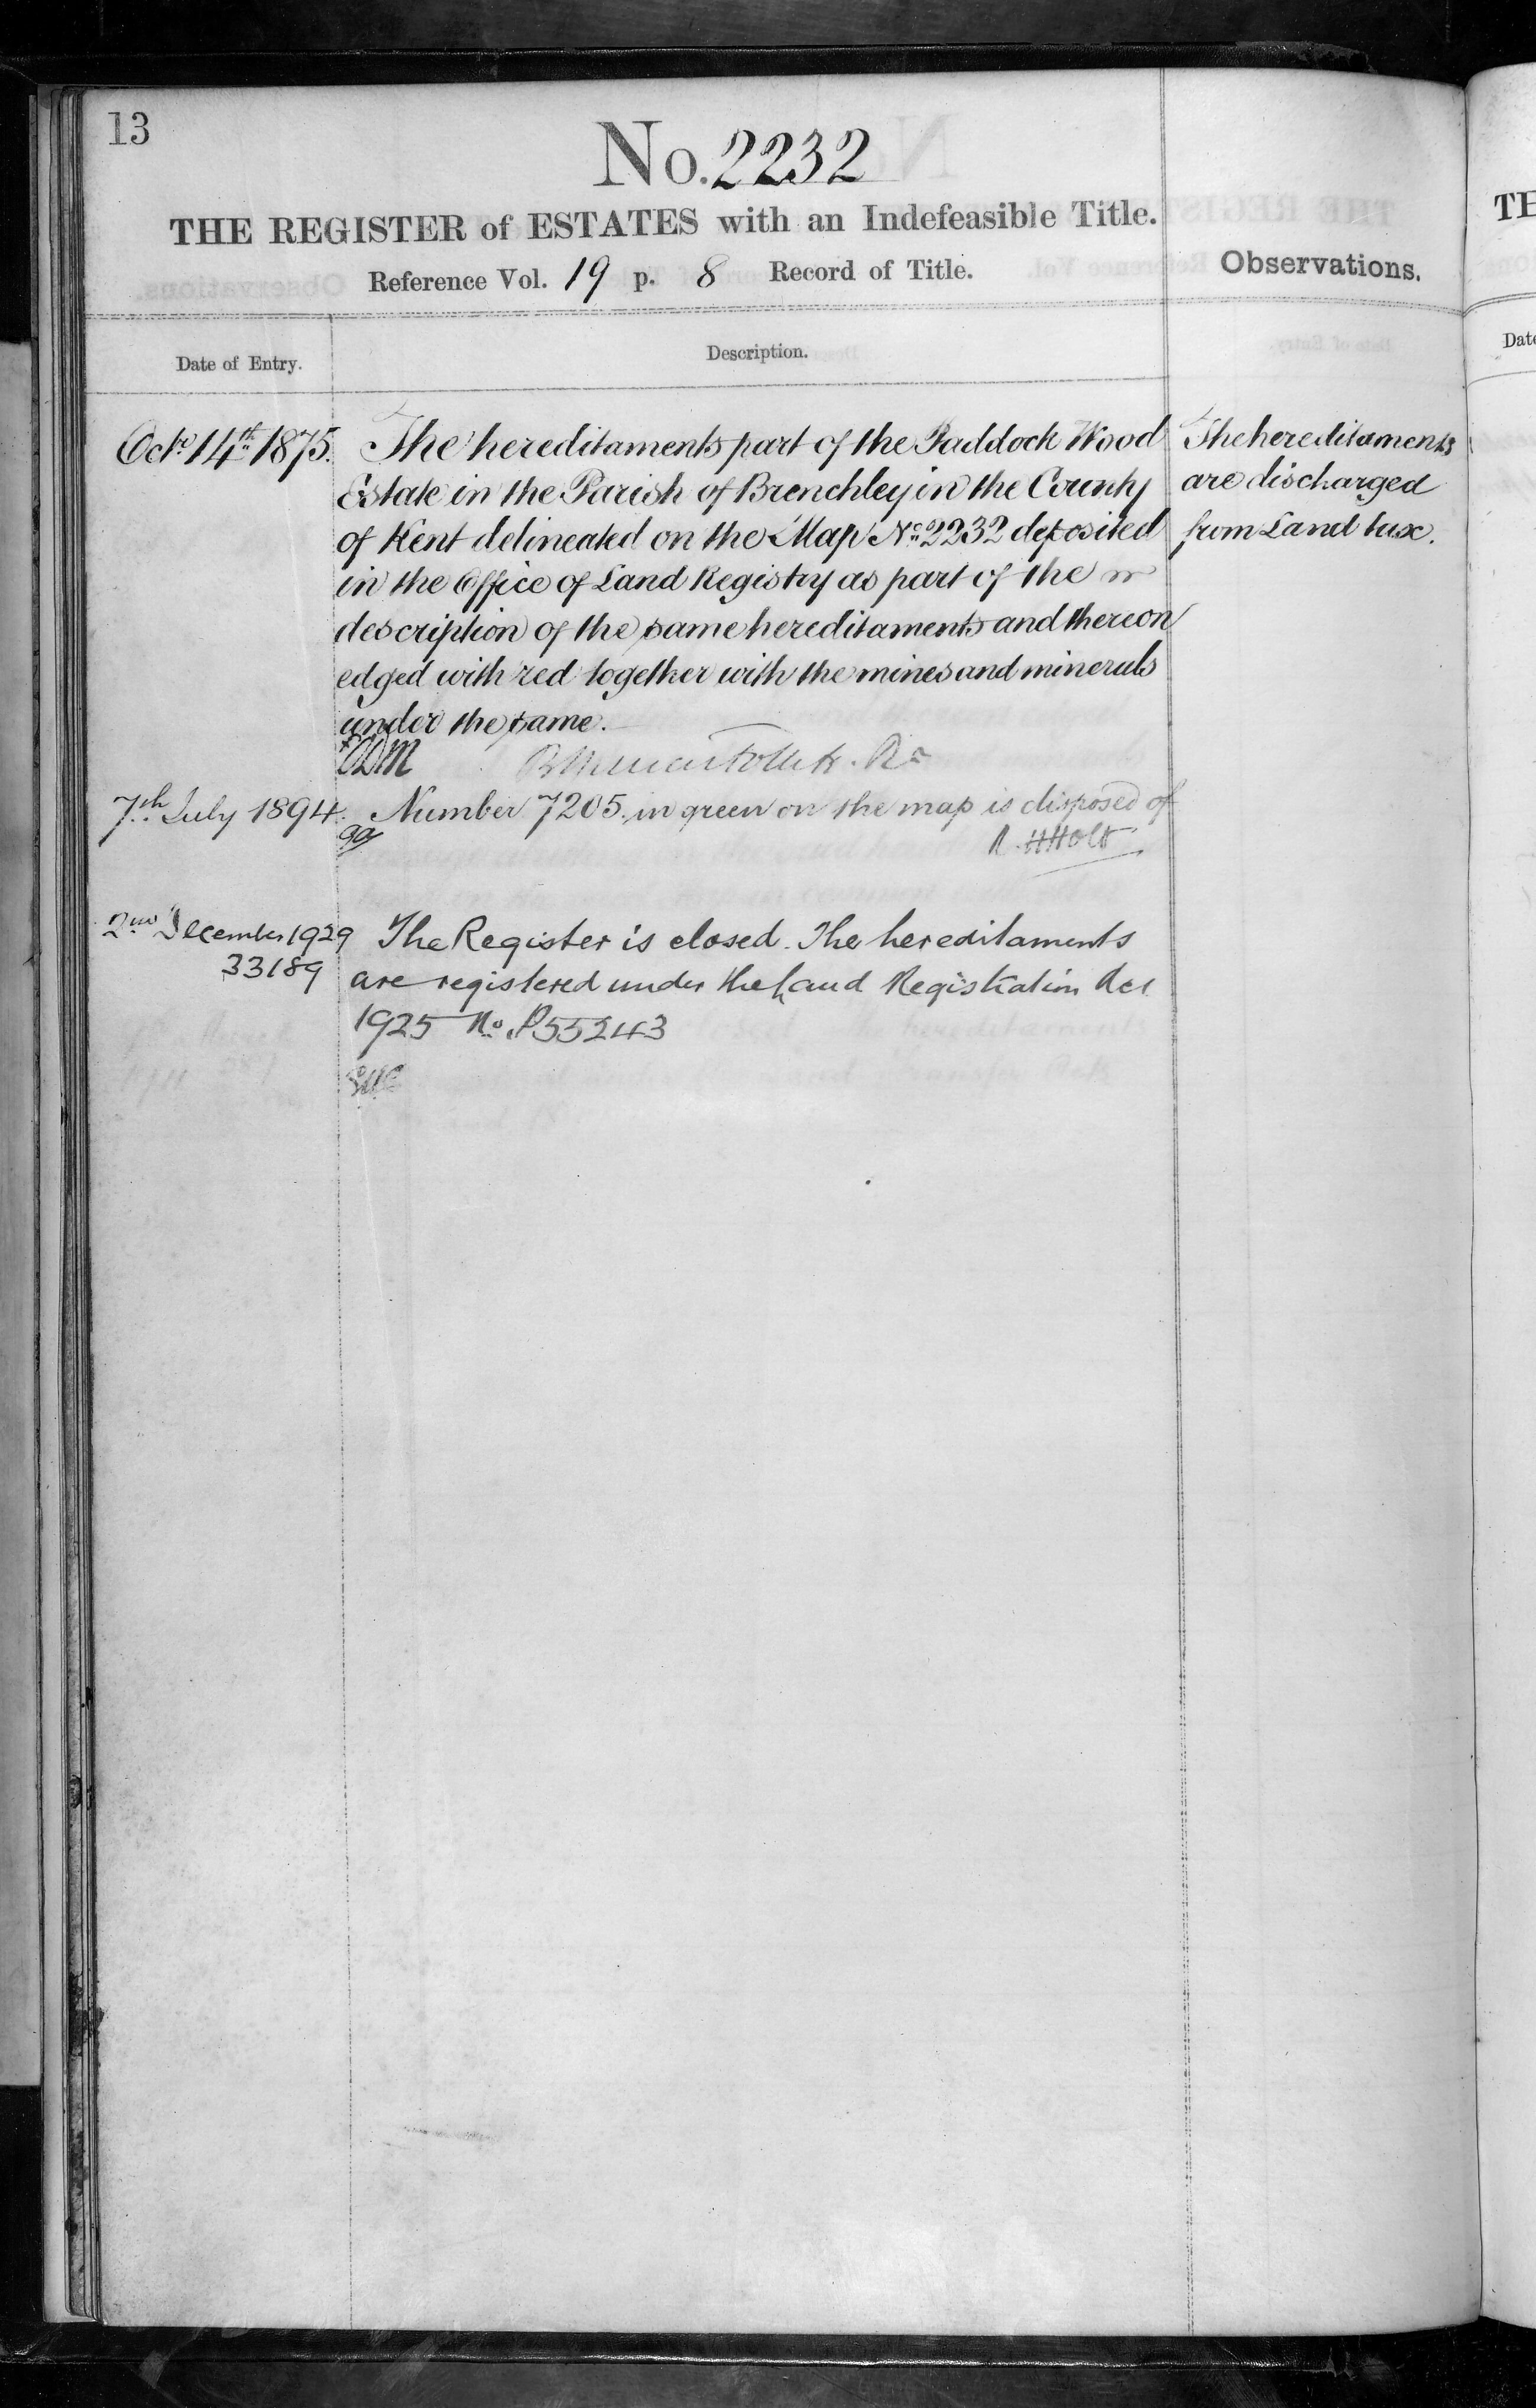 13
No. 2232
THE REGISTER of ESTATES with an Indefeasible Title.
Reference Vol. 19 p. 8 Record of Title.
Observations.
Date of Entry.
Description.
Octr. 14th 1875.
The hereditaments part of the Paddock Wood
Estate in the Parish of Brenchley in the County
of Kent delineated on the Map No. 2232 deposited
in the Office of Land Registry as part of the
description of the same hereditaments and thereon
edged with red together with the mines and minerals
under the same.
The hereditaments
are discharged
from Land tax.
7th July 1894.
Number 7205 in green on the map is disposed of
R. H Holt
2nd December 1929
33189
The Register is closed. The hereditaments
are registered under the Land Registration Act
1925 No. P55243
TE
Date